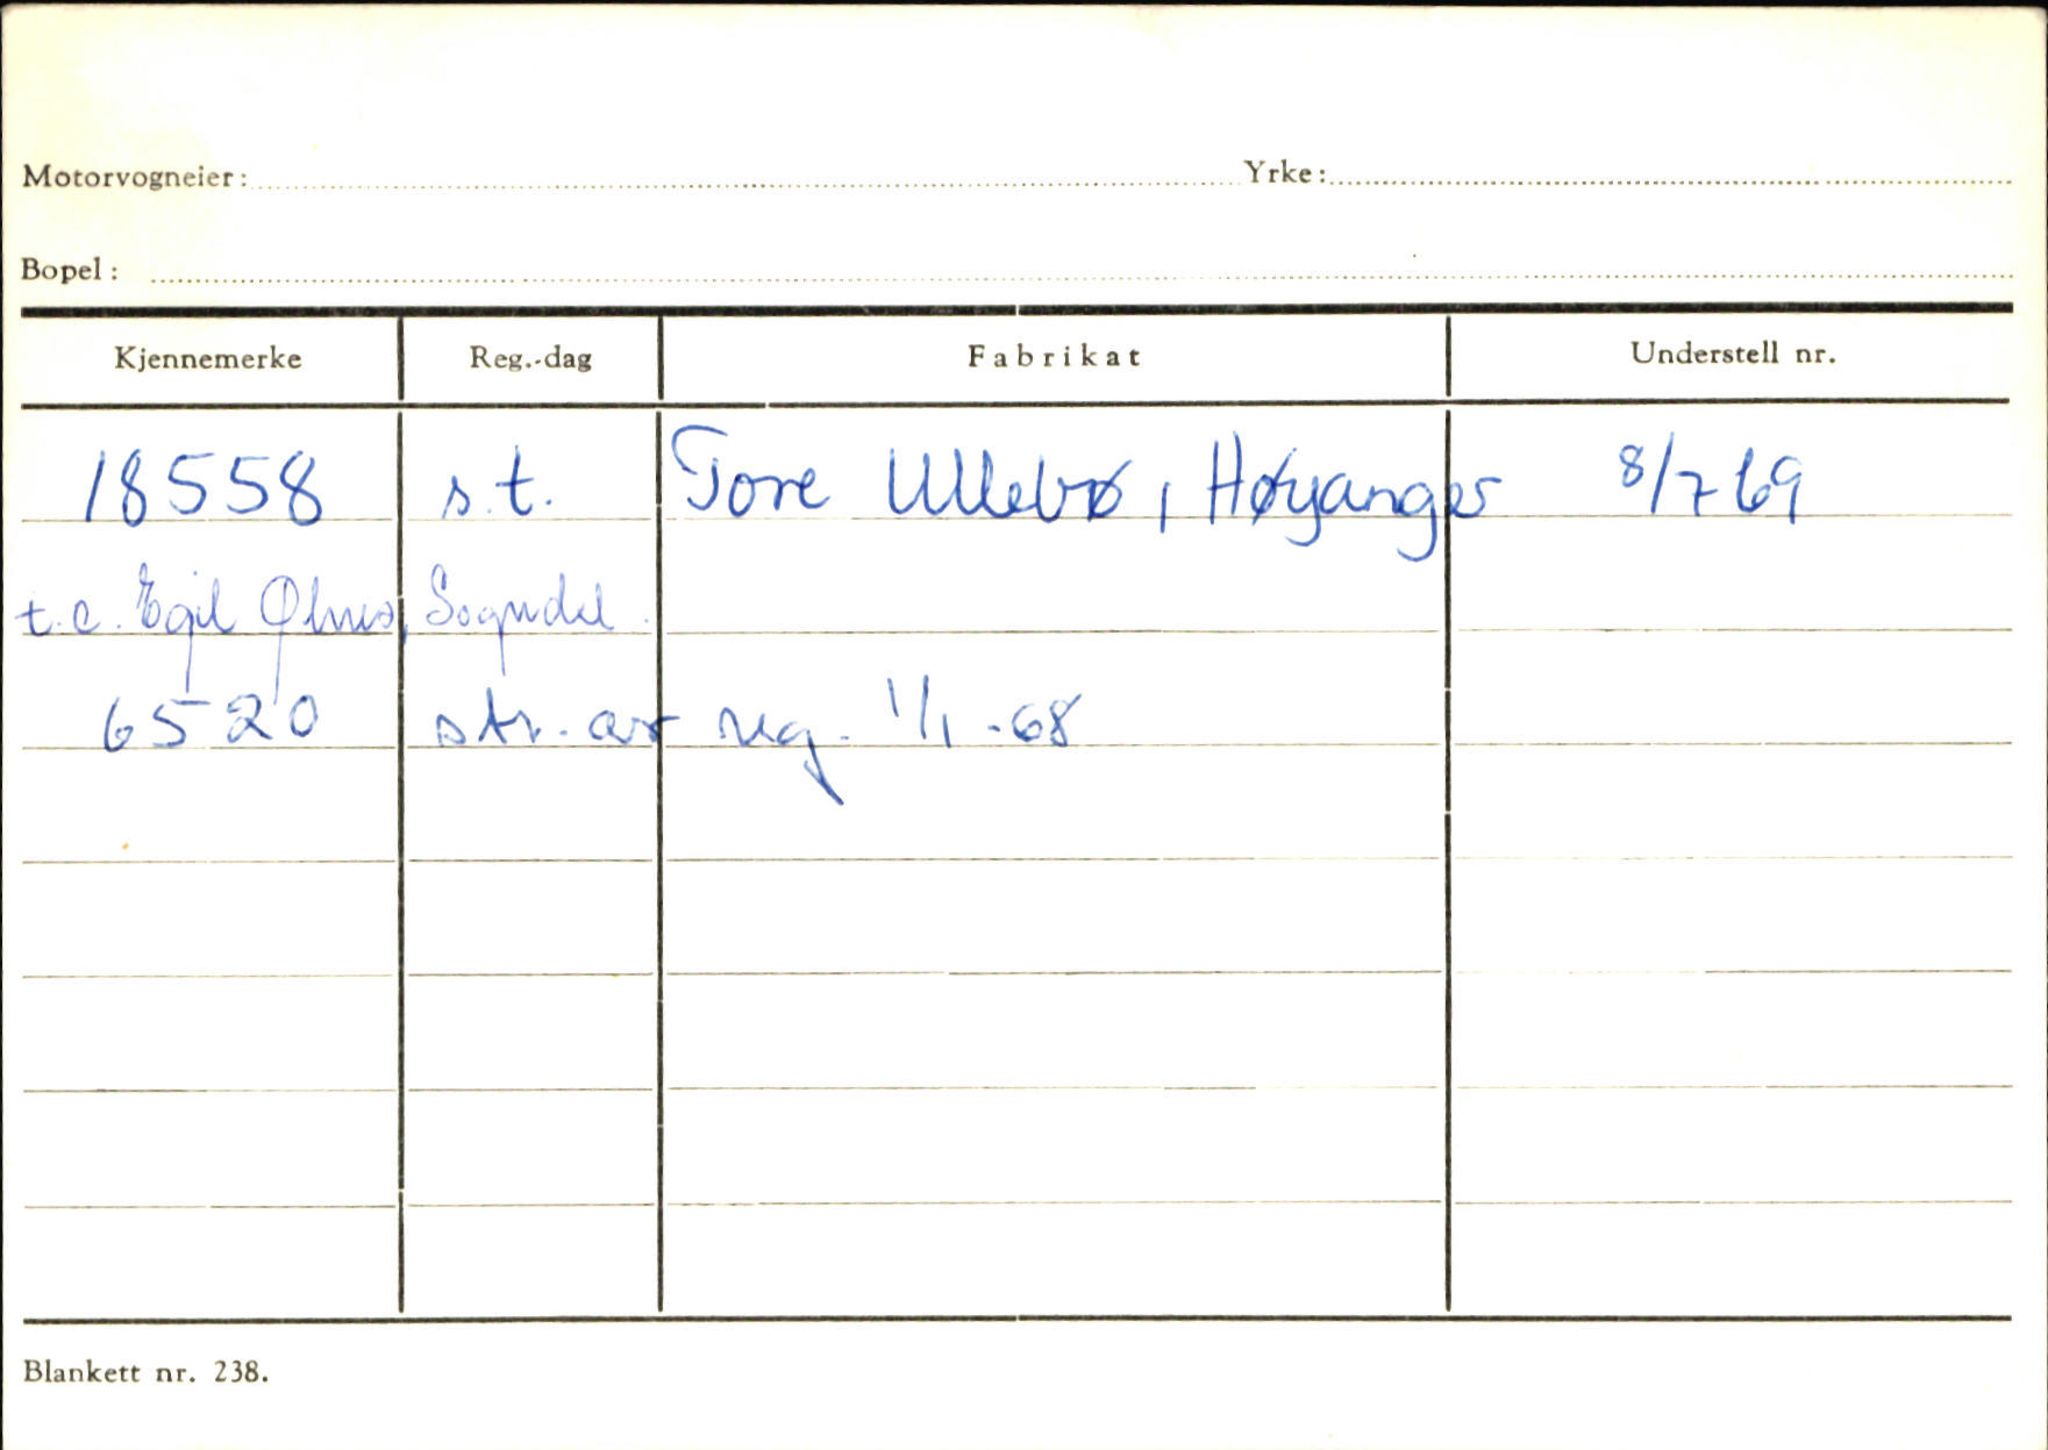 Motorvogneier: Yrke:
Bopel:
Kjennemerke Reg.-dag Fabrikat Understell nr.
18558 s.t. Tore Ullebø, Høyanger 8/7 69
t.c. Egil Ølnes, Sogndal.
6520 str. av reg. 1/1-68
Blankett nr. 238.